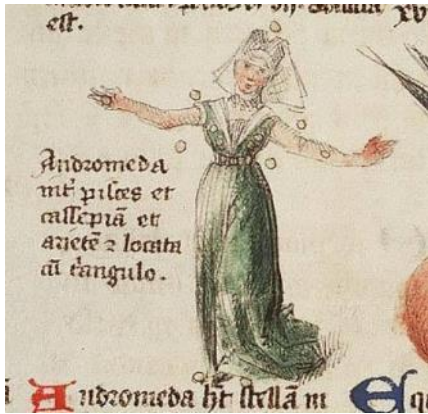 est.
Andromeda
int̄ pisces et
cassepiā et
arietē ⁊ locata
cū t̄angulo.
Andromeda ht̄ stellā in